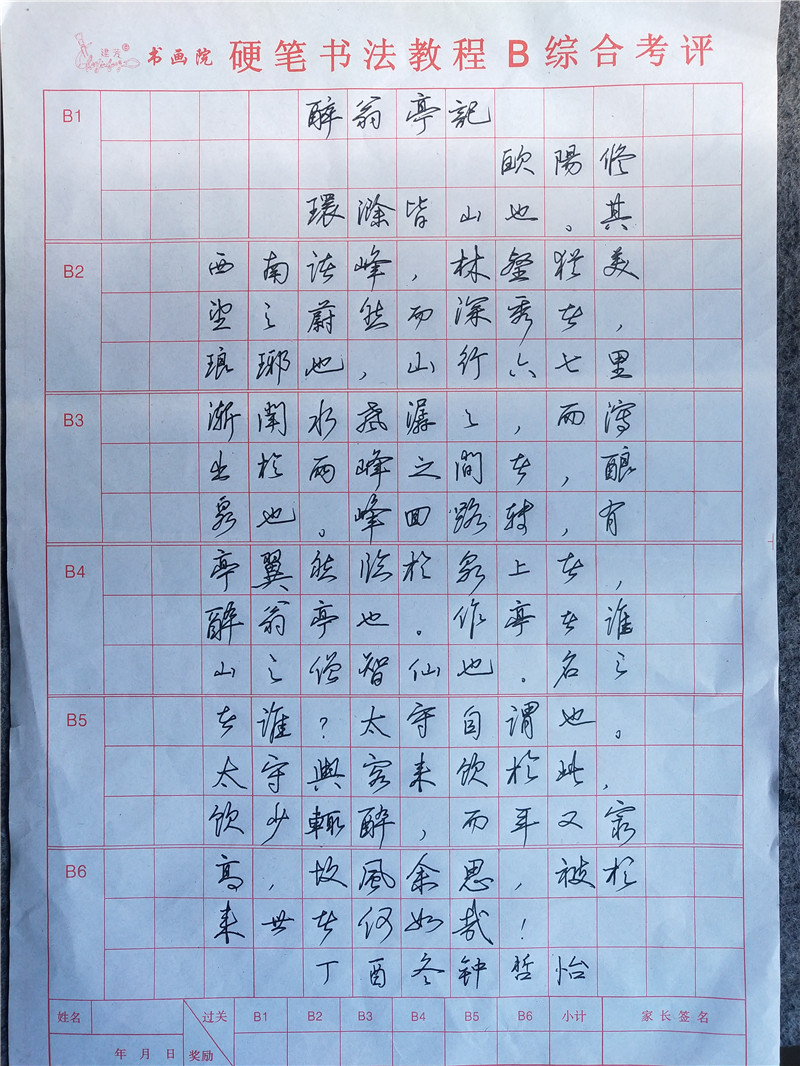 建芳 书画院 硬笔书法教程 B 综合考评
B1 醉翁亭記
歐陽修
環滁皆山也。其
B2 西南諸峰，林壑猶美
望之蔚然而深秀者，
琅琊也，山行六七里
B3 漸聞水聲潺々，而瀉
出於兩峰之間者，釀
泉也。峰回路轉，有
B4 亭翼然臨於泉上者，
醉翁亭也。作亭者誰
山之僧智仙也。名之
B5 者誰？太守自謂也。
太守與客来飲於此，
飲少輒醉，而年又最
B6 高，故風余思，被於
来世者何如哉！
丁酉冬钟哲怡
姓名 过关 B1 B2 B3 B4 B5 B6 小计 家长签名
年 月 日 奖励